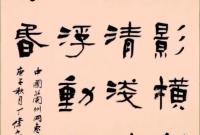 影橫
清淺
浮動
昏
中國蘭州
庚子秋月丁